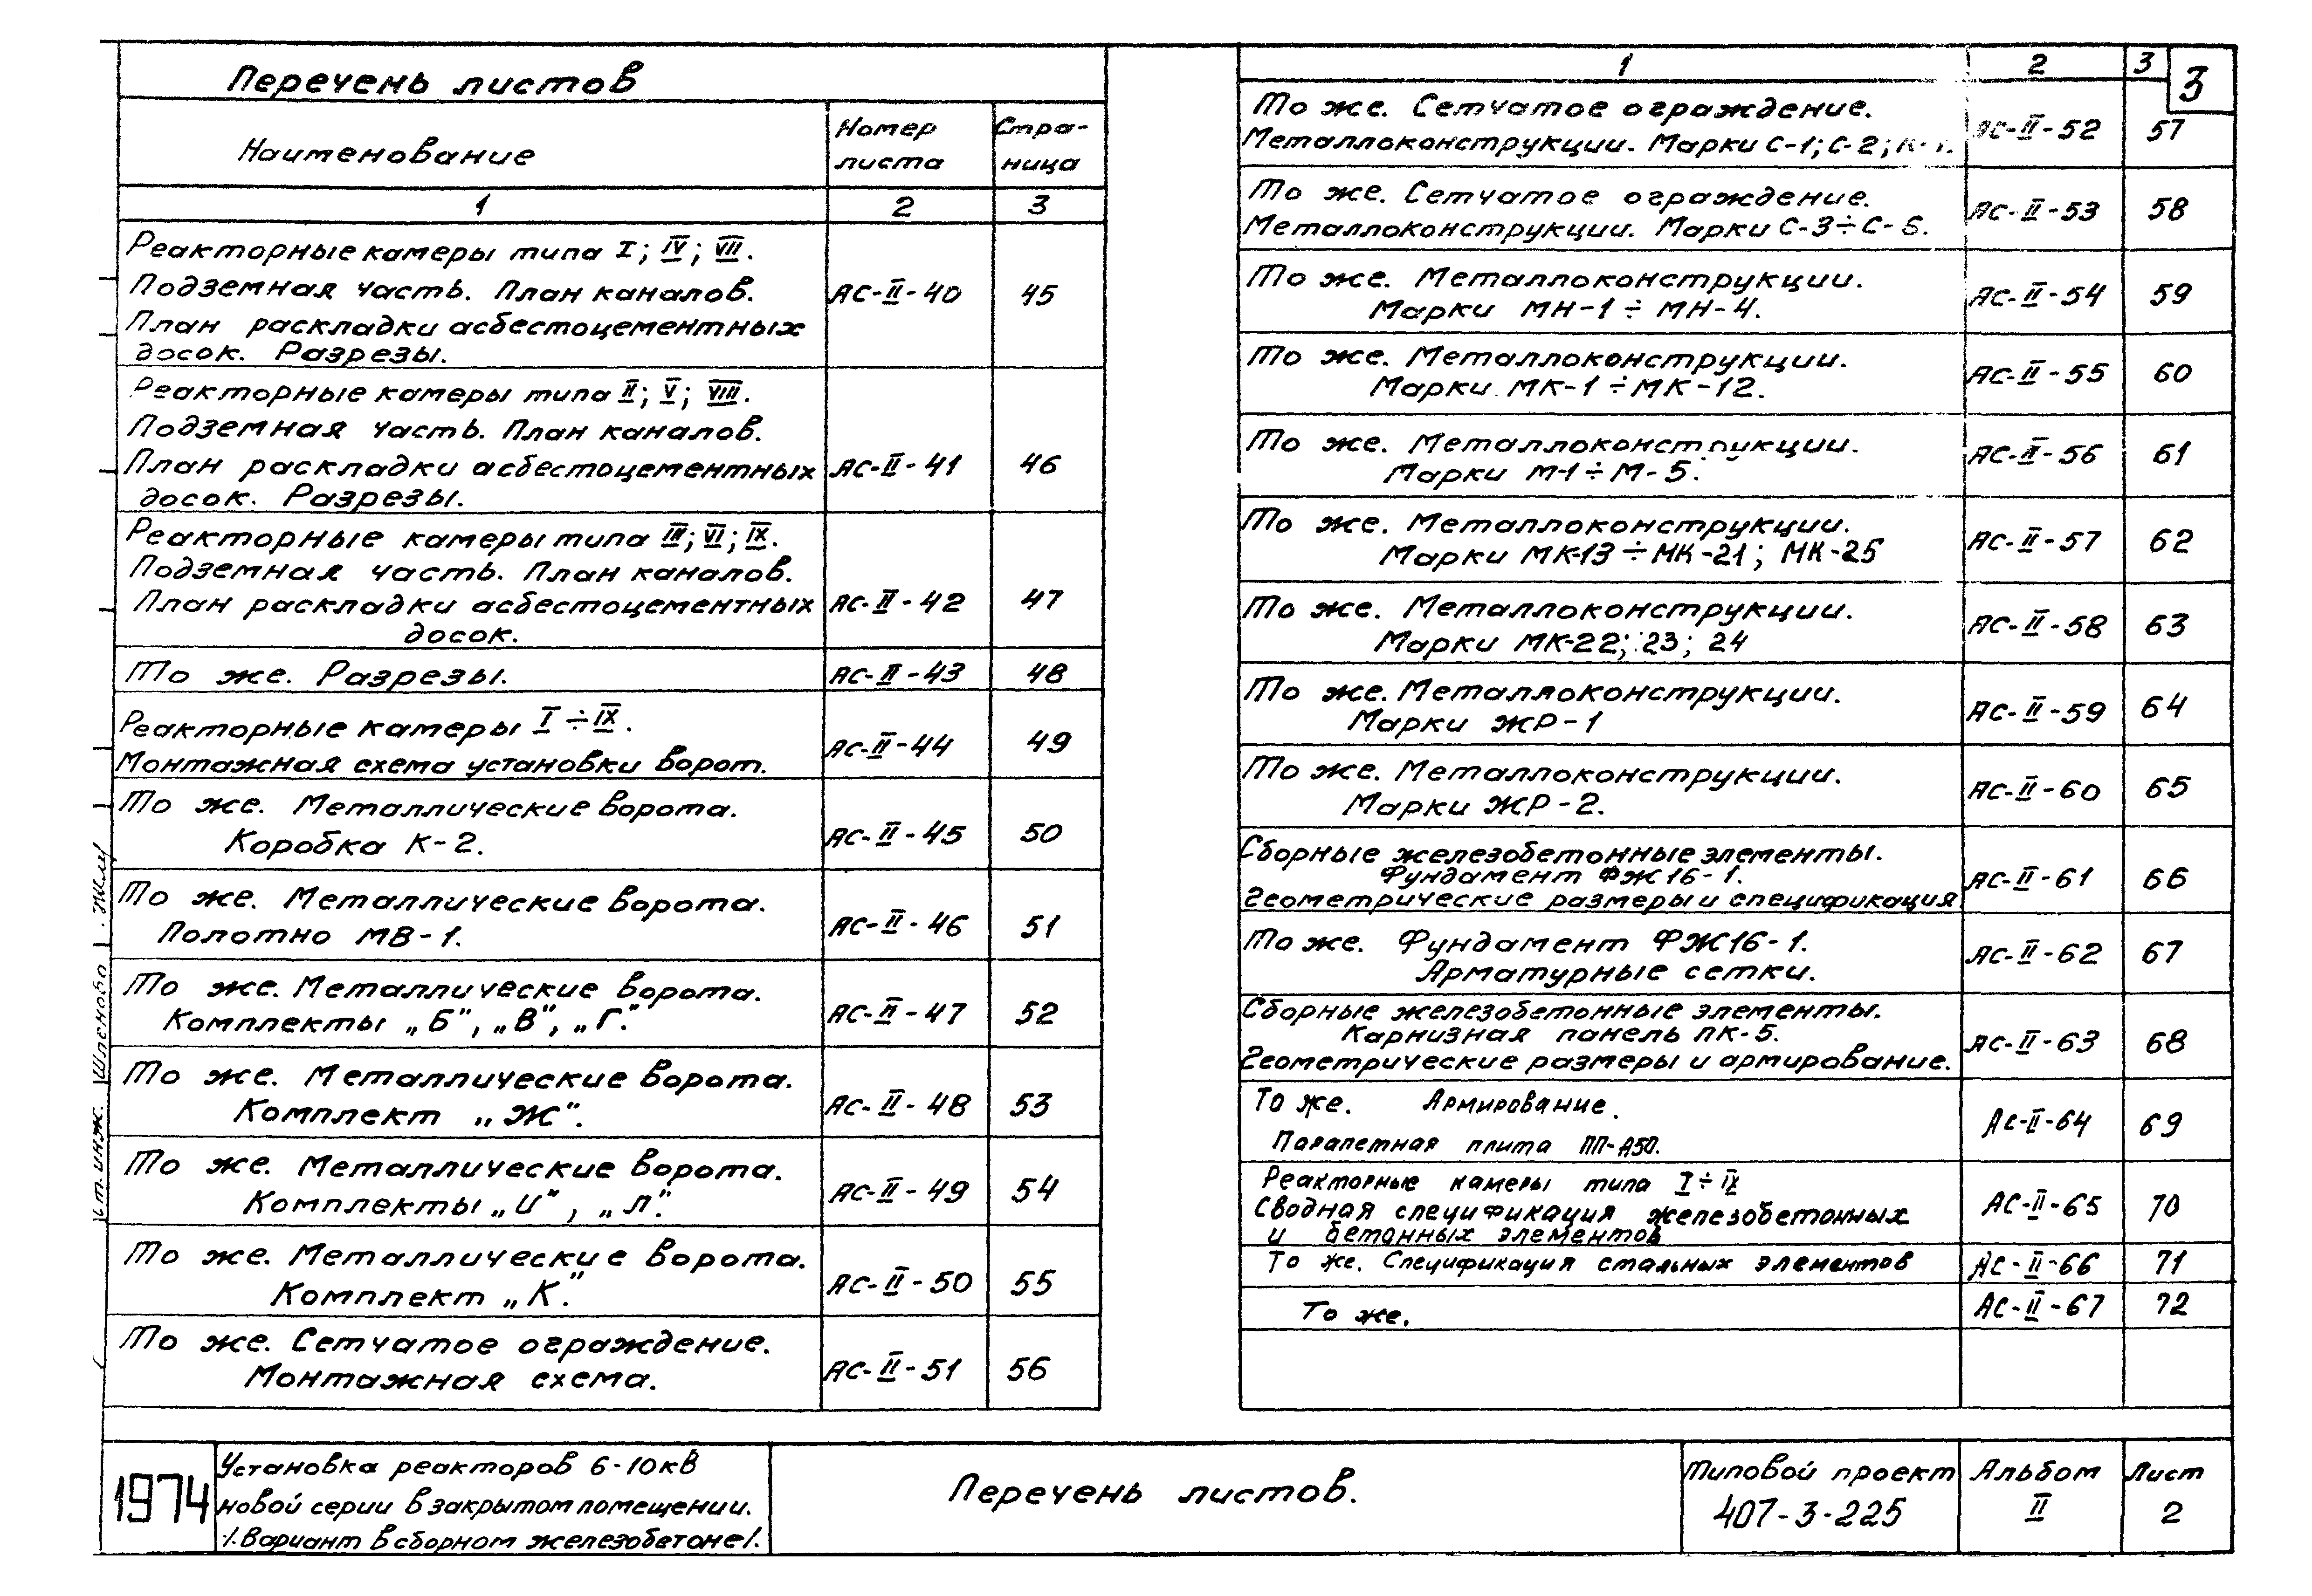 Перечень листов
Наименование
Номер листа
Стра-ница
1 2 3
Реакторные камеры типа I; IV; VII.
Подземная часть. План каналов. АС-II-40 45
План раскладки асбестоцементных
досок. Разрезы.
Реакторные камеры типа II; V; VIII.
Подземная часть. План каналов.
План раскладки асбестоцементных АС-II-41 46
досок. Разрезы.
Реакторные камеры типа III; VI; IX.
Подземная часть. План каналов.
План раскладки асбестоцементных АС-II-42 47
досок.
То же. Разрезы. АС-II-43 48
Реакторные камеры I÷IX.
Монтажная схема установки ворот. АС-II-44 49
То же. Металлические ворота.
Коробка К-2. АС-II-45 50
То же. Металлические ворота.
Полотно МВ-1. АС-II-46 51
То же. Металлические ворота.
Комплекты „Б", „В", „Г". АС-II-47 52
То же. Металлические ворота.
Комплект „Ж". АС-II-48 53
То же. Металлические ворота.
Комплекты „И", „Л". АС-II-49 54
То же. Металлические ворота.
Комплект „К". АС-II-50 55
То же. Сетчатое ограждение.
Монтажная схема. АС-II-51 56
1 2 3
3
То же. Сетчатое ограждение.
Металлоконструкции. Марки С-1; С-2; К-1. АС-II-52 57
То же. Сетчатое ограждение.
Металлоконструкции. Марки С-3÷С-6. АС-II-53 58
То же. Металлоконструкции.
Марки МН-1÷МН-4. АС-II-54 59
То же. Металлоконструкции.
Марки МК-1÷МК-12. АС-II-55 60
То же. Металлоконструкции.
Марки М-1÷М-5. АС-II-56 61
То же. Металлоконструкции.
Марки МК-13÷МК-21; МК-25 АС-II-57 62
То же. Металлоконструкции.
Марки МК-22; 23; 24 АС-II-58 63
То же. Металлоконструкции.
Марки ЖР-1 АС-II-59 64
То же. Металлоконструкции.
Марки ЖР-2. АС-II-60 65
Сборные железобетонные элементы.
Фундамент ФЖ16-1. АС-II-61 66
Геометрические размеры и спецификация.
То же. Фундамент ФЖ16-1.
Арматурные сетки. АС-II-62 67
Сборные железобетонные элементы.
Карнизная панель ПК-5. АС-II-63 68
Геометрические размеры и армирование.
То же. Армирование.
Парапетная плита ПП-А50. АС-II-64 69
Реакторные камеры типа I÷IX
Сводная спецификация железобетонных АС-II-65 70
и бетонных элементов
То же. Спецификация стальных элементов АС-II-66 71
То же. АС-II-67 72
ст. инж.
1974
Установка реакторов 6-10кВ
новой серии в закрытом помещении.
/.Вариант в сборном железобетоне/.
Перечень листов.
Типовой проект
407-3-225
Альбом
II
Лист
2